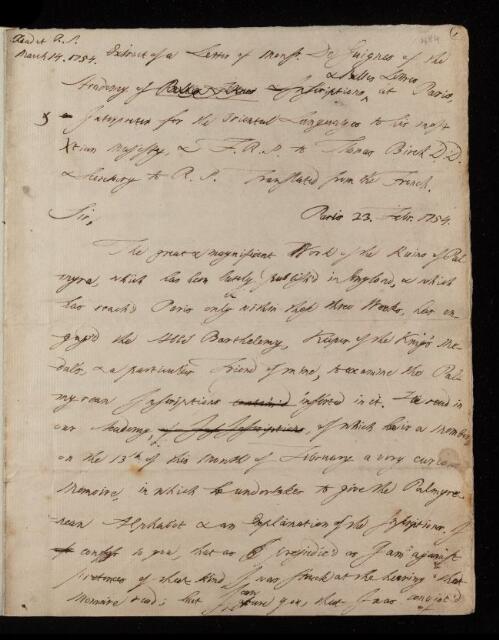 Read at R.S.
March 14. 1754.
Extract of a Letter of Mons. De Guignes of the
& Belles Lettres
Academy of Inscriptions, at Paris,
Interpreter for the Oriental Languages to his most
Xtian Majesty, & F.R.S. to Thomas Birch D.D.
& Secretary to R.S. Translated from the French.
Sir,
Paris 23. Febr. 1754.
The great & magnificent Work of the Ruins of Pal-
myra, which has been lately publish'd in England, & which
has reach'd Paris only within these three Weeks, has en-
gag'd the Abbé Barthelemy, Keeper of the King's Me-
dals, & a particular Friend of mine, to examine the Pal-
myrean Inscriptions contained inserted in it. He read in
our Academy, of which he is a Member,
on the 13th of this Month of February a very curious
Memoire, in which he undertakes to give the Palmyre-
nean Alphabet & an Explanation of the Inscriptions. I
confess to you, that as prejudic'd as I am against
pretences of that kind I was struck at the hearing that
Memoire read; but I can assure you, that I was convinc'd